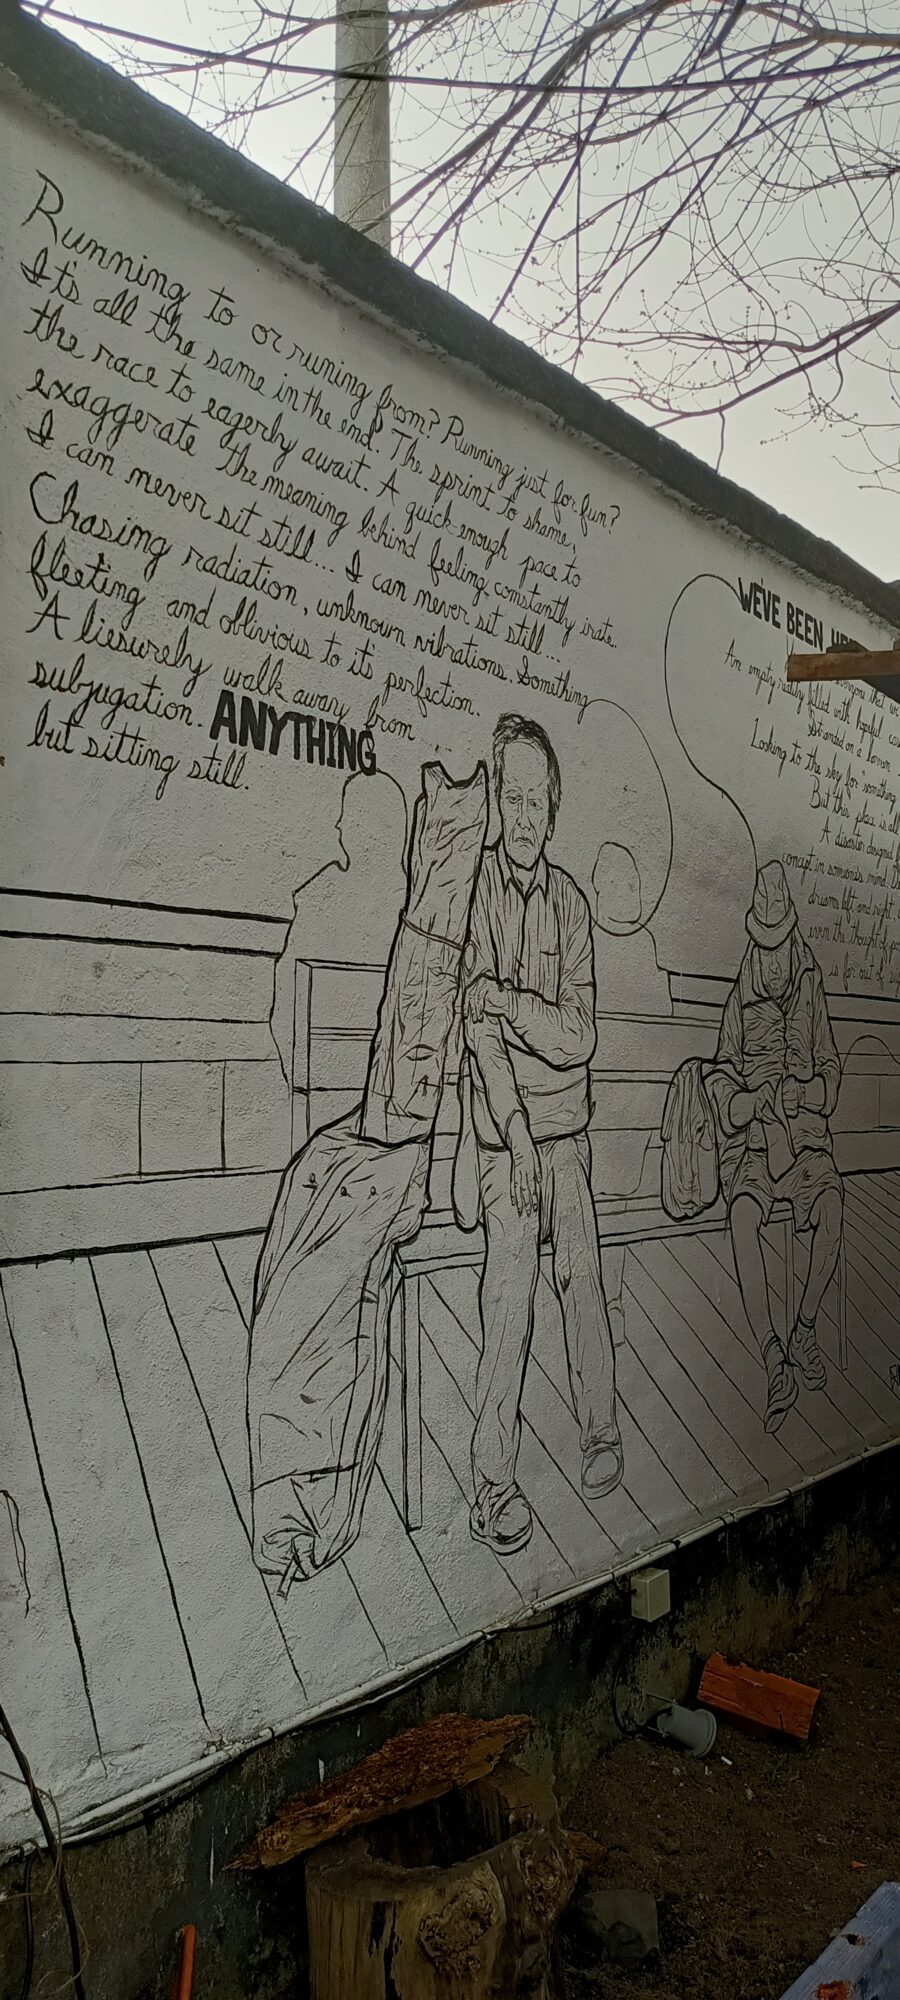 Running to or runing from? Running just for fun?
It's all the same in the end. The sprint to shame,
the race to eagerly await. A quick enough pace to
exaggerate the meaning behind feeling constantly irate.
I can never sit still... I can never sit still...
Chasing radiation, unknown vibrations. Something
fleeting and oblivious to it's perfection.
A liesurely walk away from ...
subjugation. ANYTHING
but sitting still.
WE'VE BEEN
everyone that we
An empty reality filled with hopeful
Stranded on a barren
Looking to the sky for "something
But this place is all
A disaster designed
concept in someone's mind.
dreams left and right,
even the thought of
is far out of